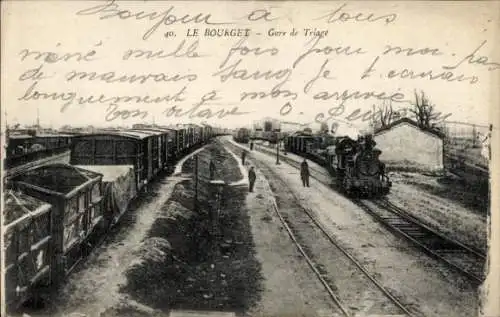 Bonjour à tous
40. LE BOURGET - Gare de Triage
mené mille fois pour moi.
de mauvais sang. Je t'écrirais
longuement a mon arrivée
bon octave